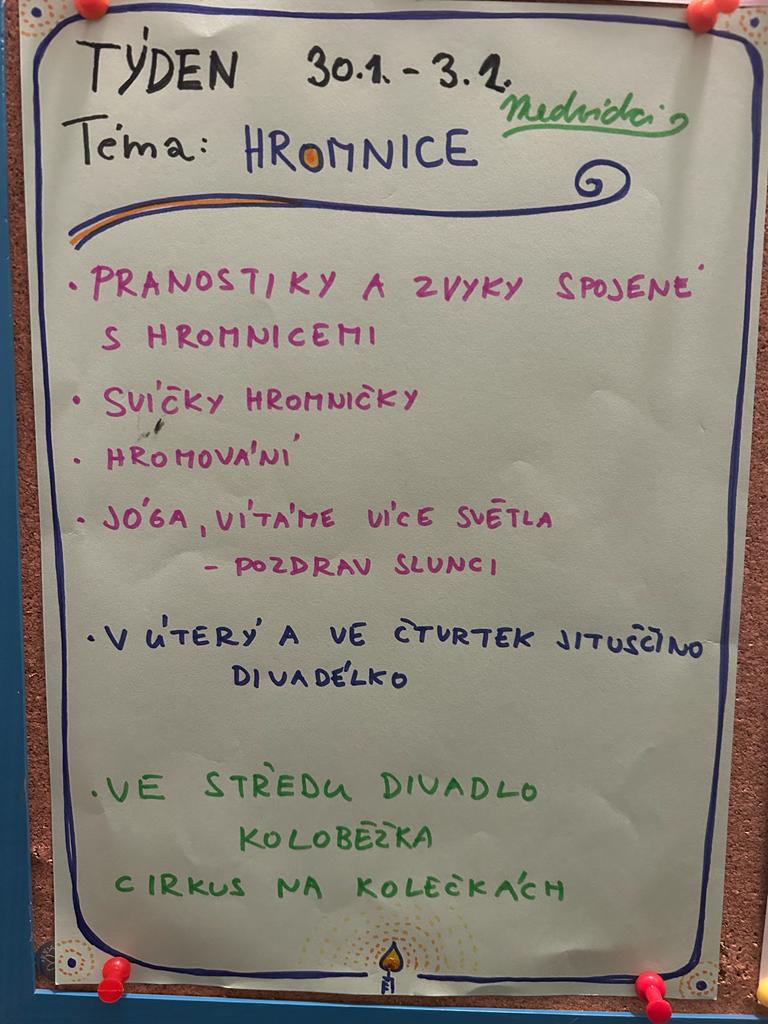 TÝDEN 30.1. - 3.2.
Medvídci
Téma: HROMNICE
• PRANOSTIKY A ZVYKY SPOJENÉ
S HROMNICEMI
• SVÍČKY HROMNIČKY
• HROMOVÁNÍ
• JÓGA, VÍTÁME VÍCE SVĚTLA
- POZDRAV SLUNCI
• V ÚTERÝ A VE ČTVRTEK JITUŠČINO
DIVADÉLKO
• VE STŘEDU DIVADLO
KOLOBĚŽKA
CIRKUS NA KOLEČKÁCH